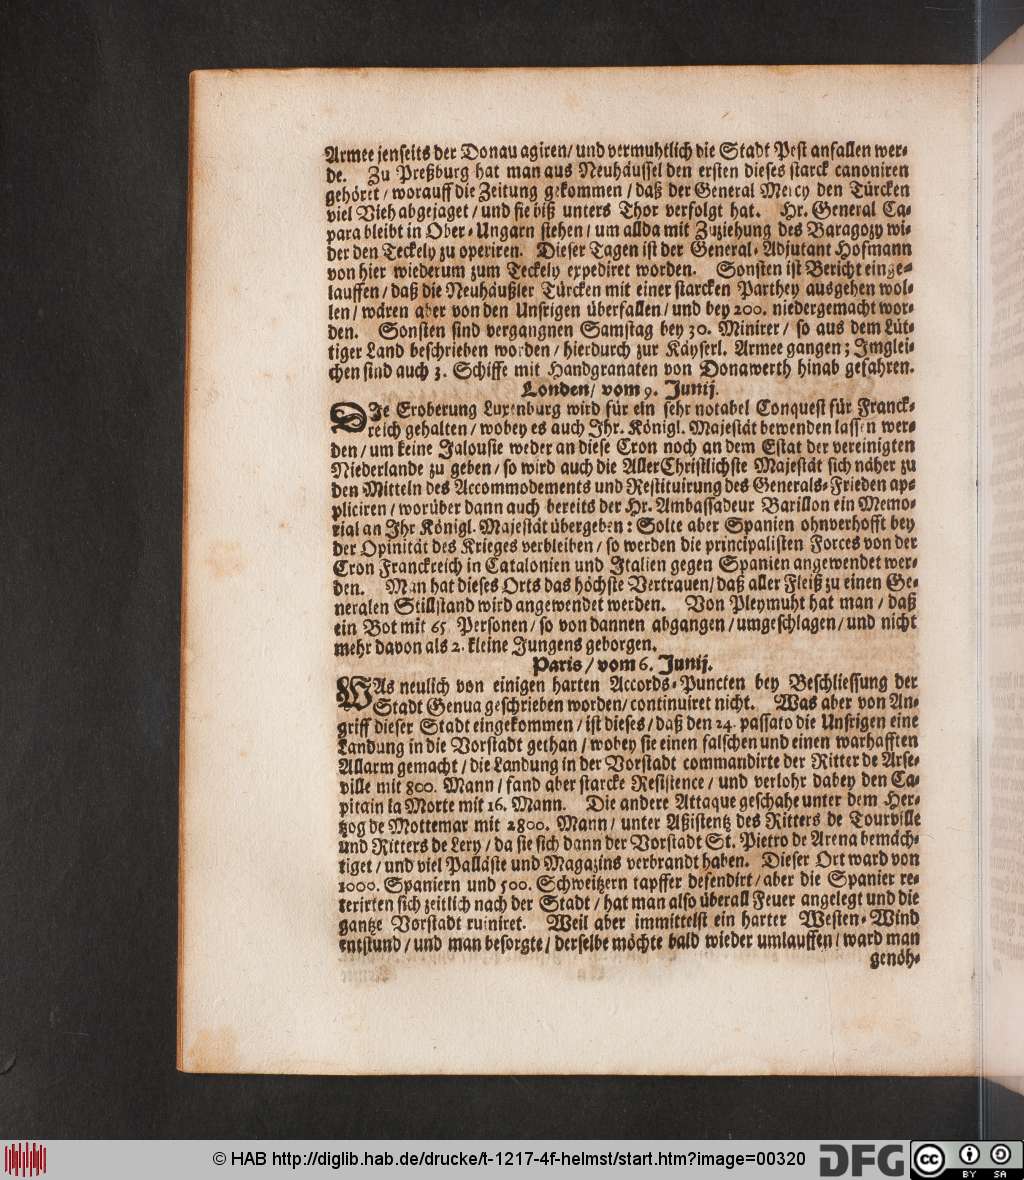 Armee jenseits der Donau agiren/ und vermuhtlich die Stadt Pest anfallen wer-
de. Zu Preßburg hat man aus Neuhäussel den ersten dieses starck canoniren
gehöret / worauff die Zeitung gekommen / daß der General Mercy den Türcken
viel Vieh abgejaget / und sie biß unters Thor verfolgt hat. Hr. General Ca-
para bleibt in Ober-Ungarn stehen / um allda mit Zuziehung des Baragozy wi-
der den Teckely zu operiren. Dieser Tagen ist der General-Adjutant Hofmann
von hier wiederum zum Teckely expediret worden. Sonsten ist Bericht einge-
lauffen / daß die Neuhäußler Türcken mit einer starcken Parthey ausgehen wol-
len / wären aber von den Unsrigen überfallen / und bey 200. niedergemacht wor-
den. Sonsten sind vergangnen Samstag bey 30. Minirer / so aus dem Lüt-
tiger Land beschrieben worden / hierdurch zur Käyserl. Armee gangen; Imglei-
chen sind auch 3. Schiffe mit Handgranaten von Donawerth hinab gefahren.
Londen/ vom 9. Junij.
DIe Eroberung Luxenburg wird für ein sehr notabel Conquest für Franck-
reich gehalten / wobey es auch Ihr. Königl. Majestät bewenden lassen wer-
den / um keine Jalousie weder an diese Cron noch an dem Estat der vereinigten
Niederlande zu geben / so wird auch die AllerChristlichste Majestät sich näher zu
den Mitteln des Accommodements und Restituirung des Generals-Frieden ap-
pliciren / worüber dann auch bereits der Hr. Ambassadeur Barillon ein Memo-
rial an Ihr Königl. Majestät übergeben: Solte aber Spanien ohnverhofft bey
der Opinität des Krieges verbleiben / so werden die principalisten Forces von der
Cron Franckreich in Catalonien und Italien gegen Spanien angewendet wer-
den. Man hat dieses Orts das höchste Vertrauen/ daß aller Fleiß zu einen Ge-
neralen Stillstand wird angewendet werden. Von Pleymuht hat man / daß
ein Bot mit 65. Personen / so von dannen abgangen / umgeschlagen / und nicht
mehr davon als 2. kleine Jungens geborgen.
Paris / vom 6. Junij.
WAs neulich von einigen harten Accords-Puncten bey Beschliessung der
Stadt Genua geschrieben worden/ continuiret nicht. Was aber von An-
griff dieser Stadt eingekommen / ist dieses / daß den 24. passato die Unsrigen eine
Landung in die Vorstadt gethan / wobey sie einen falschen und einen warhafften
Allarm gemacht / die Landung in der Vorstadt commandirte der Ritter de Arse-
ville mit 800. Mann / fand aber starcke Resistence / und verlohr dabey den Ca-
pitain la Morte mit 16. Mann. Die andere Attaque geschahe unter dem Her-
tzog de Mottemar mit 2800. Mann / unter Aßistentz des Ritters de Tourville
und Ritters de Lery / da sie sich dann der Vorstadt St. Pietro de Arena bemäch-
tiget / und viel Palläste und Magazins verbrandt haben. Dieser Ort ward von
1000. Spaniern und 500. Schweitzern tapffer defendirt / aber die Spanier re-
terirten sich zeitlich nach der Stadt / hat man also überall Feuer angelegt und die
gantze Vorstadt ruiniret. Weil aber immittelst ein harter Westen-Wind
entstund / und man besorgte / derselbe möchte bald wieder umlauffen / ward man
genöh-
© HAB http://diglib.hab.de/drucke/t-1217-4f-helmst/start.htm?image=00320
DFG
cc BY SA